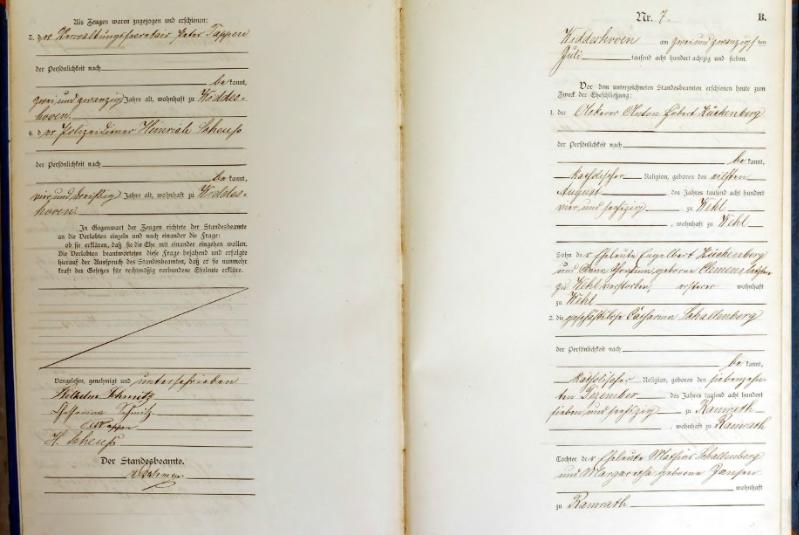 Als Zeugen waren zugezogen und erschienen:
3. der Verwaltungssecretair Peter Tappen
der Persönlichkeit nach
be kannt,
zwei und zwanzig Jahre alt, wohnhaft zu Widdes-
hoven.
4. der Polizeidiener Heinrich Scheuß
der Persönlichkeit nach
be kannt,
vier und dreißig Jahre alt, wohnhaft zu Widdes-
hoven.
In Gegenwart der Zeugen richtete der Standesbeamte
an die Verlobten einzeln und nach einander die Frage:
ob sie erklären, daß sie die Ehe mit einander eingehen wollen.
Die Verlobten beantworteten diese Frage bejahend und erfolgte
hierauf der Ausspruch des Standesbeamten, daß er sie nunmehr
kraft des Gesetzes für rechtmäßig verbundene Eheleute erkläre.
Vorgelesen, genehmigt und unterschrieben
Wilhelm Schmitz
Catharina Schmitz
Tappen
H. Scheuß
Der Standesbeamte.
Nr. 7. B.
Widdeshoven am zwei und zwanzigsten
Juli tausend acht hundert achtzig und sieben.
Vor dem unterzeichneten Standesbeamten erschienen heute zum
Zweck der Eheschließung:
1. der Ackerer Anton Hubert Lückenberg
der Persönlichkeit nach
be kannt,
katholischer Religion, geboren den elften
August des Jahres tausend acht hundert
vier und sechszig zu Wehl
, wohnhaft zu Wehl
Sohn der Eheleute Engelbert Lückenberg
und Anna geborene Clemens
zu Wehl verstorben, ersterer wohnhaft
zu Wehl
2. die geschäftslose Catharina Schallenberg
der Persönlichkeit nach
be kannt,
katholischer Religion, geboren den siebenzehn-
ten Dezember des Jahres tausend acht hundert
sieben und sechszig zu Ramrath
, wohnhaft zu Ramrath
Tochter der Eheleute Mathias Schallenberg
und Margaretha geborene Jansen
wohnhaft
zu Ramrath